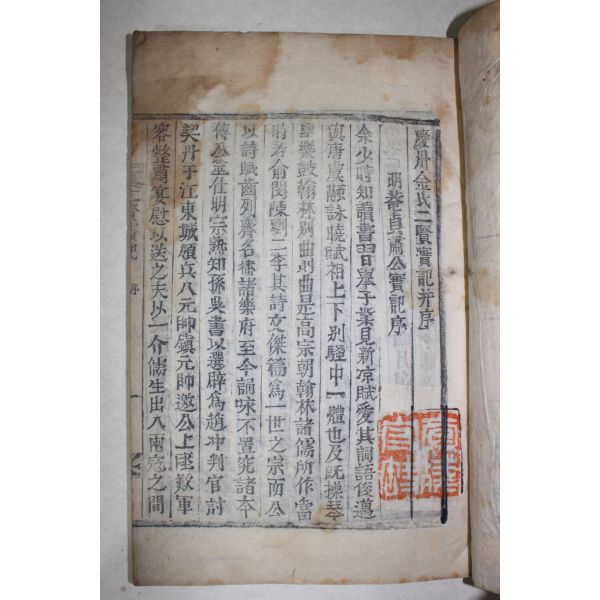 慶州金氏二賢實記并序
萌菴貞肅公實記序
余少時知讀書習擧子業見新凉賦愛其詞語俊邁
與唐虞融詠曉賦相上下別騷中一體也及旣操琴
學樂鼓翰林別曲則曲是高宗朝翰林諸儒所作當
時若俞閔陳劉二李其詩文傑篇爲一世之宗而公
以詩賦齒列齊名播諸樂府至今詞咏不置究諸本
傳公筮仕明宗熟知孫吳書以選辟爲趙冲判官討
契丹于江東城願哀八元帥鎭元帥邀公上座歎軍
容整肅宴慰以送之夫以一介儒生出入兩寇之間
序
一